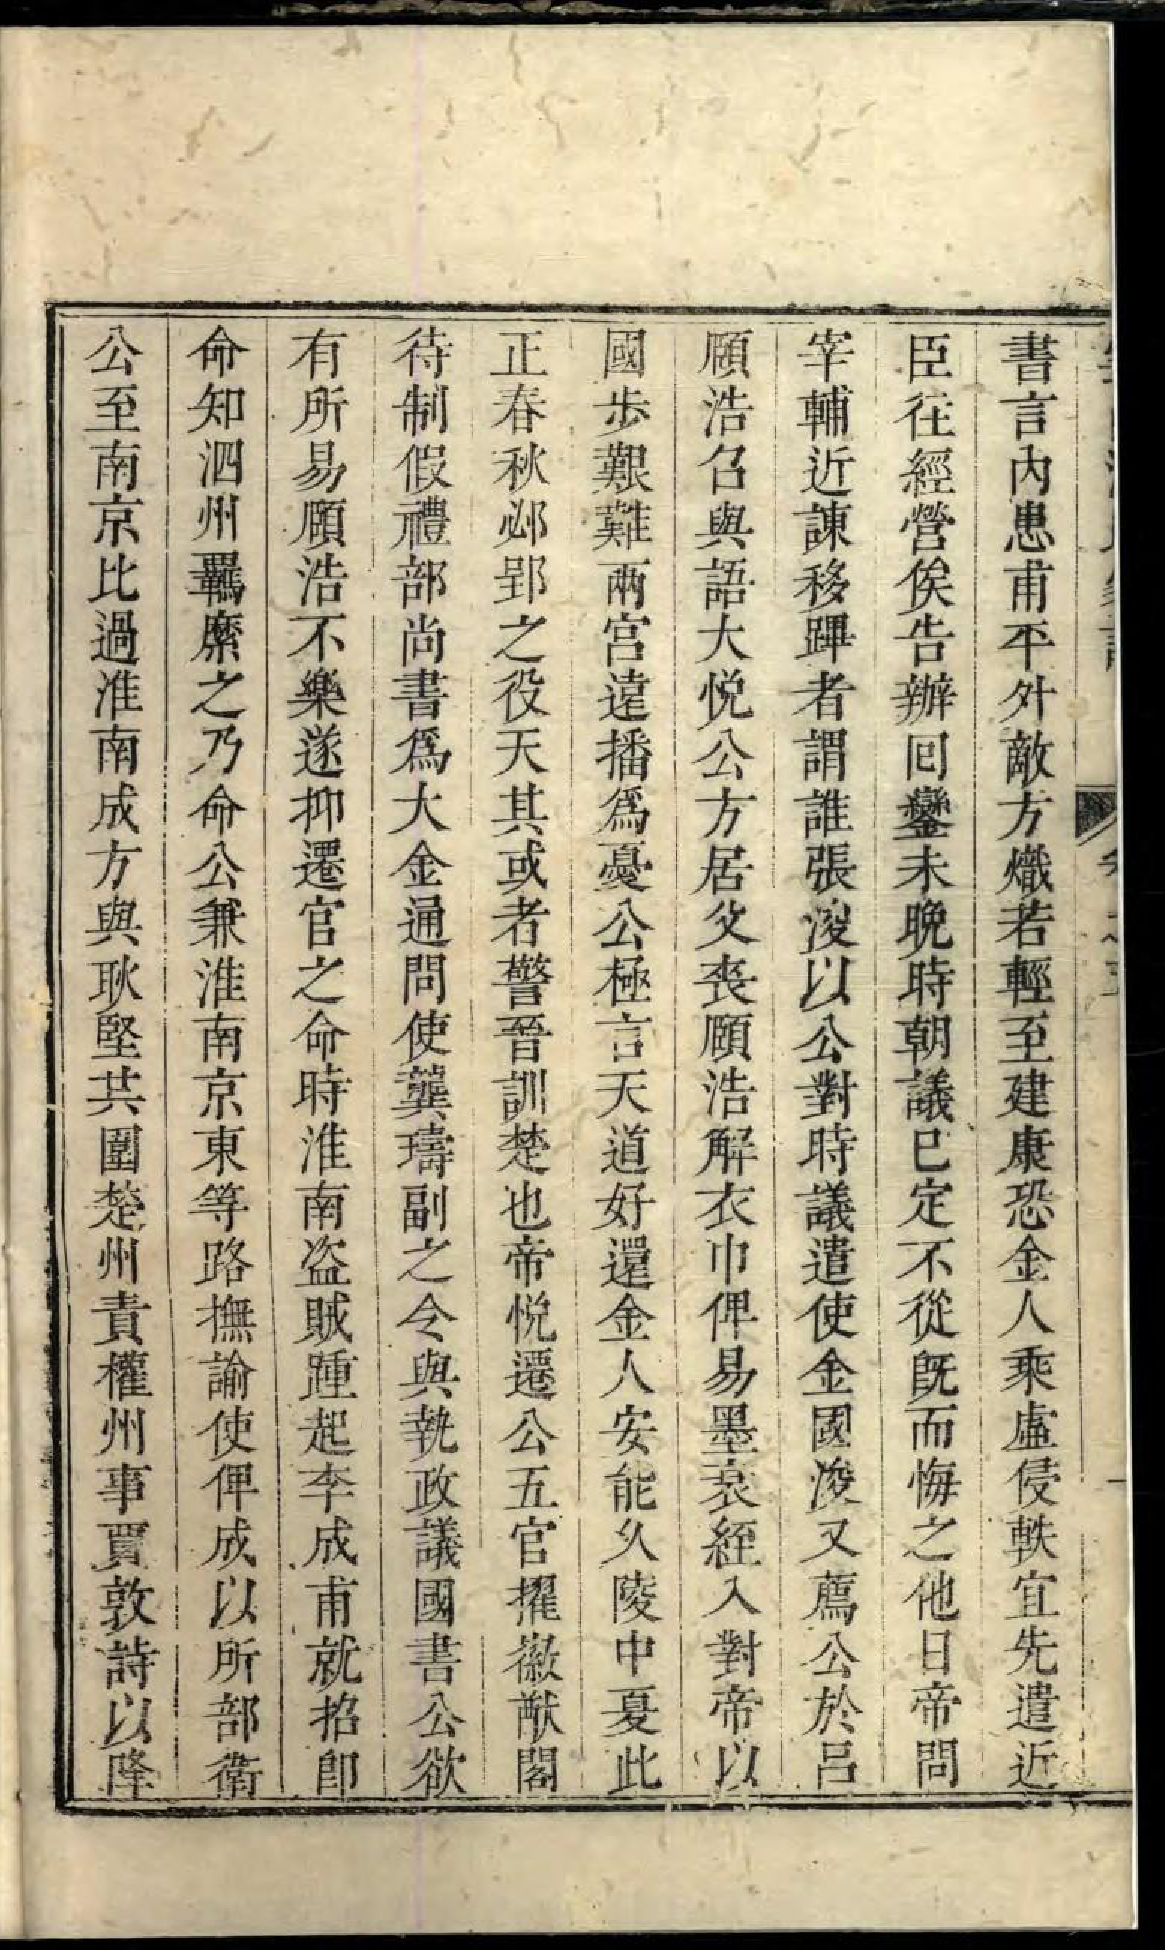 書言內患甫平外敵方熾若輕至建康恐金人乘虛侵軼宜先遣近
臣往經營俟告辦回鑾未晚時朝議已定不從旣而悔之他日帝問
宰輔近諫移蹕者謂誰張浚以公對時議遣使金國浚又薦公於呂
頤浩召與語大悅公方居父喪頤浩解衣巾俾易墨衰絰入對帝以
國步艱難兩宮遠播爲憂公極言天道好還金人安能久陵中夏此
正春秋邲郢之役天其或者警晉訓楚也帝悅遷公五官擢徽猷閣
待制假禮部尚書爲大金通問使龔璹副之令與執政議國書公欲
有所易頤浩不樂遂抑遷官之命時淮南盜賊踵起李成甫就招卽
命知泗州羈縻之乃命公兼淮南京東等路撫諭使俾成以所部衛
公至南京比過淮南成方與耿堅共圍楚州責權州事賈敦詩以降